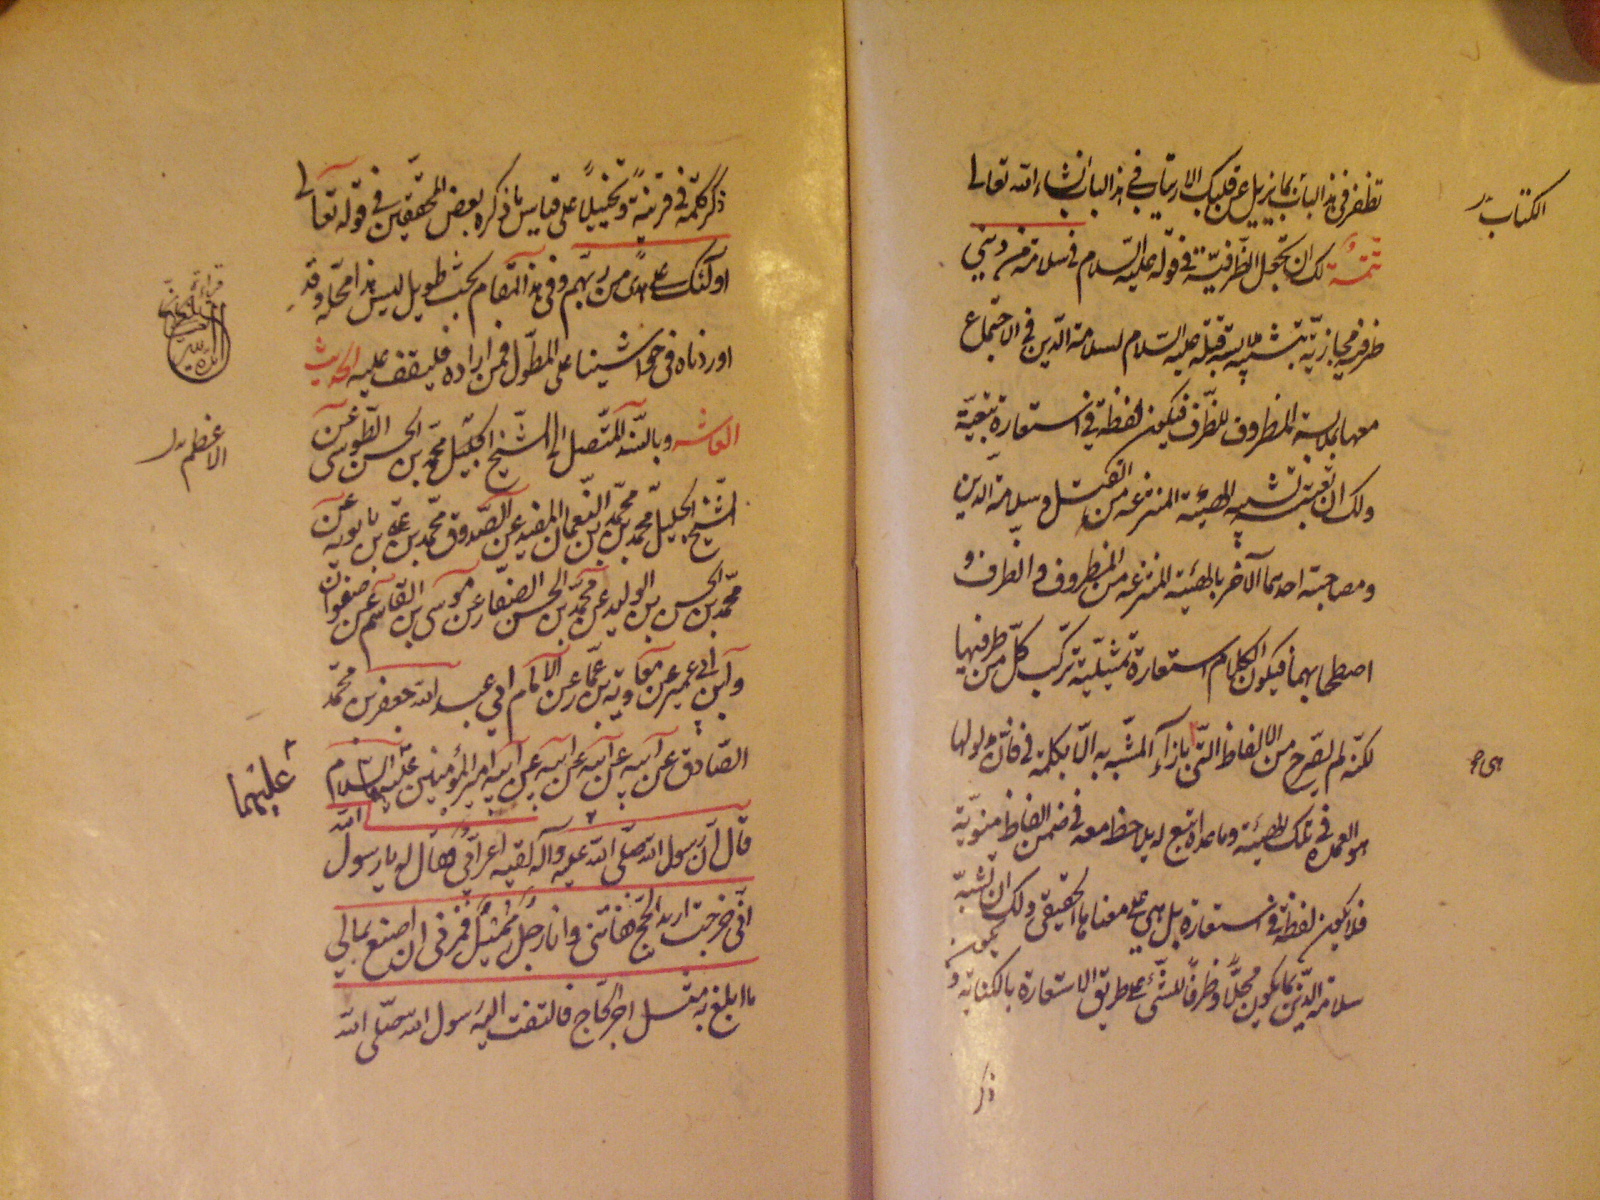 تظفر فی هذا الباب بما یزیل عن قلبک الارتیاب فی هذا الباب انشاء الله تعالی
الکتاب
تتمة لک ان تجعل الظرفیّة فی قوله علیه السّلام فی سلامة من دینی
ظرفیة مجازیّة بتشبیه ملابسة قبله علیه السّلام لسلامة الدّین فی الاجتماع
معها بملابسة المظروف للظّرف فیکون لفظة فی استعارة تبعیّة
ولک ان تعتبر تشبیه الهیئة المنتزعة من القتل وسلامة الدین
ومصاحبة احدهما الآخر بالهیئة المنتزعة من المظروف والظرف و
اصطحابهما فیکون الکلام استعارة تمثیلیّة ترکّب کلّ من طرفیها
لکنّه لم یصّرح من الالفاظ الّتی بازاء المشبّه به الّا بکلمة فی فانّ مدلولها
هو العمدة فی تلک الهیئة وما عداه تبع له یلاحظ معه فی ضمن الفاظ منویّة
فلا تکون لفظة فی استعارة بل هی علی معناها الحقیقی ولک ان تشبّه
سلامة الدّین بما یکون محلّاً وظرفاً للشّئ علی طریق الاستعارة بالکنایة و
یکون
ذکر
ذکر کلمة فی قرینةً وتخییلاً علی قیاس ما ذکره بعض المحقّقین فی قوله تعالی
اولئک علی هدًی من ربّهم وفی هذا المقام بحث طویل لیس هذا محلّه وقد
اوردناه فی حواشینا علی المطوّل فمن اراده فلیقف علیه الحدیث
العاشر وبالسّند المتّصل الی الشّیخ الجلیل محمّد بن الحسن الطّوسی عن
الاعظم
الشّیخ الجلیل محمد بن محمّد بن النّعمان المفید عن الصّدوق محمّد بن علی بن بابویه عن
محمّد بن الحسن بن الولید عن محمّد بن الحسن الصفّار عن موسی بن القاسم عن صفوان
وابن ابی عمیر عن معاویة بن عمّار عن الامام ابی عبد الله جعفر بن محمّد
الصّادق عن ابیه عن ابیه عن ابیه عن ابیه امیر المؤمنین علیه السلام
علیهما
قال انّ رسول الله صلّی الله علیه وآله لقیه اعرابیّ فقال له یا رسول الله
انّی خرجت ارید الحجّ ففاتنی وانا رجل ممیّل فمرنی ان اصنع بمالی
ما ابلغ به مثل اجر الحاج فالتفت الیه رسول الله صلّی الله